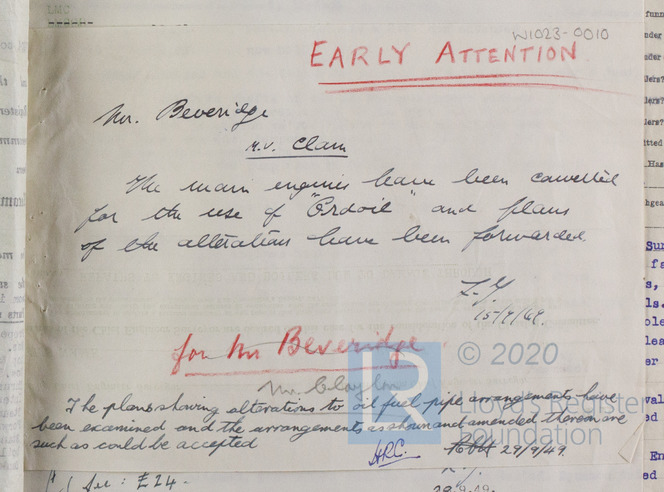 JMC
W1023-0010
EARLY ATTENTION
Mr. Beveridge
M.V. Clam
The main engines have been converted
for the use of "Ordoil" and plans
of the alterations have been forwarded.
15/9/49.
for Mr Beveridge
Mr. Clayton
© 2020
Lloyd's Register
Foundation
The plans showing alterations to oil fuel pipe arrangements have
been examined and the arrangements as shown and amended thereon are
such as could be accepted
29/9/49.
£24-
29.9.49.